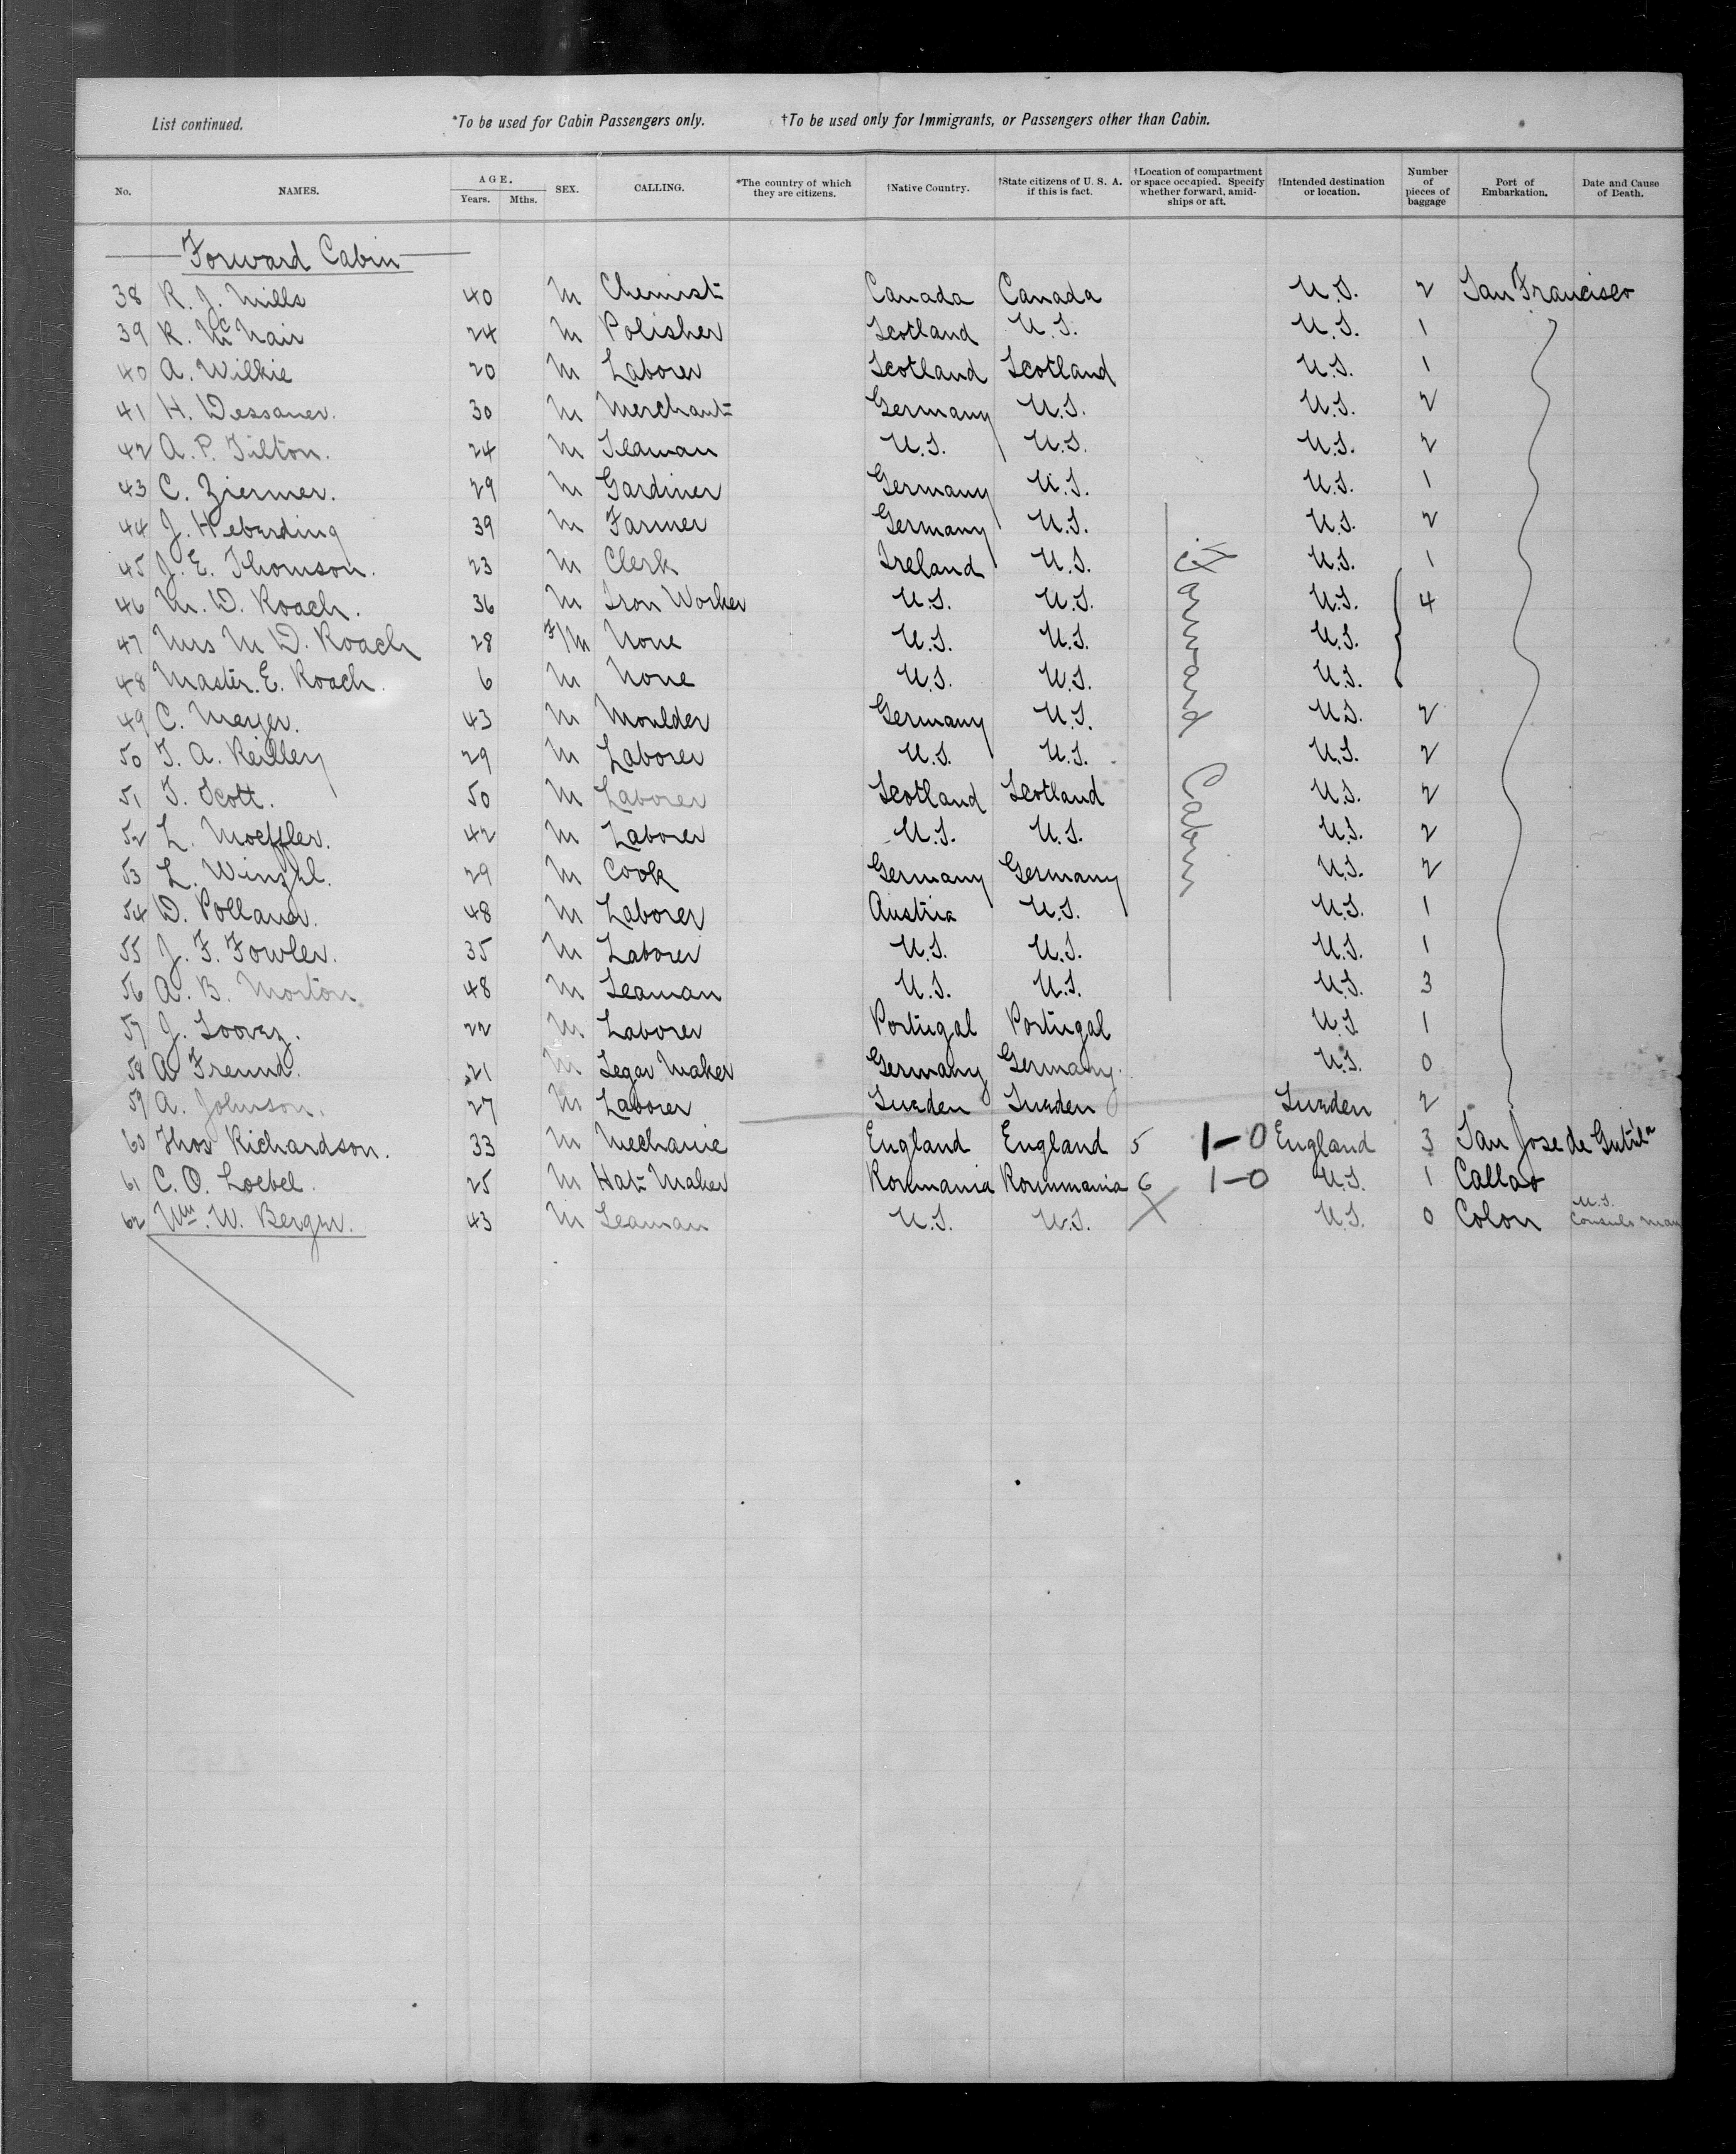 List continued. *To be used for Cabin Passengers only. †To be used only for Immigrants, or Passengers other than Cabin.
No. NAMES. AGE. Years. Mths. SEX. CALLING. *The country of which they are citizens. †Native Country. †State citizens of U. S. A. if this is fact. †Location of compartment or space occupied. Specify whether forward, amidships or aft. †Intended destination or location. Number of pieces of baggage Port of Embarkation. Date and Cause of Death.
Forward Cabin
38 R. J. Mills 40 M Chemist Canada Canada U.S. 2 San Francisco
39 R. McNair 24 M Polisher Scotland U.S. U.S. 1
40 A. Wilkie 20 M Laborer Scotland Scotland U.S. 1
41 H. Dessauer. 30 M Merchant Germany U.S. U.S. 2
42 A. P. Tilton. 24 M Seaman U.S. U.S. U.S. 2
43 C. Ziermer. 29 M Gardiner Germany U.S. U.S. 1
44 J. Heberding 39 M Farmer Germany U.S. U.S. 2
45 J. E. Thomson. 23 M Clerk Ireland U.S. U.S. 1
46 M. D. Roach. 36 M Iron Worker U.S. U.S. U.S. 4
47 Mrs M D. Roach 28 F/M None U.S. U.S. U.S.
48 Master. E. Roach. 6 M None U.S. U.S. U.S.
49 C. Meyer. 43 M Moulder Germany U.S. U.S. 2
50 T. A. Reilley 29 M Laborer U.S. U.S. U.S. 2
51 T. Scott. 50 M Laborer Scotland Scotland U.S. 2
52 L. Moeffler. 42 M Laborer U.S. U.S. U.S. 2
53 L. 29 M Cook Germany Germany U.S. 2
54 D. Pollaner. 48 M Laborer Austria U.S. U.S. 1
55 J. F. Fowler. 35 M Laborer U.S. U.S. U.S. 1
56 A. B. Morton 48 M Seaman U.S. U.S. U.S. 3
57 J. Soovez. 22 M Laborer Portugal Portugal U.S 1
58 A Freund. 21 M Segar Maker Germany Germany. U.S. 0
59 A. Johnson. 27 M Laborer Sweden Sweden Sweden 2
60 Thos Richardson. 33 M Mechanic England England 5 1-0 England 3 San Jose de
61 C. O. Loebel. 25 M Hat Maker Roumania Roummania 6 1-0 U.S. 1 Callao
62 Wm. W. Berger. 43 M Seaman U.S. U.S. X U.S. 0 Colon U.S. Consuls man
Forward Cabin